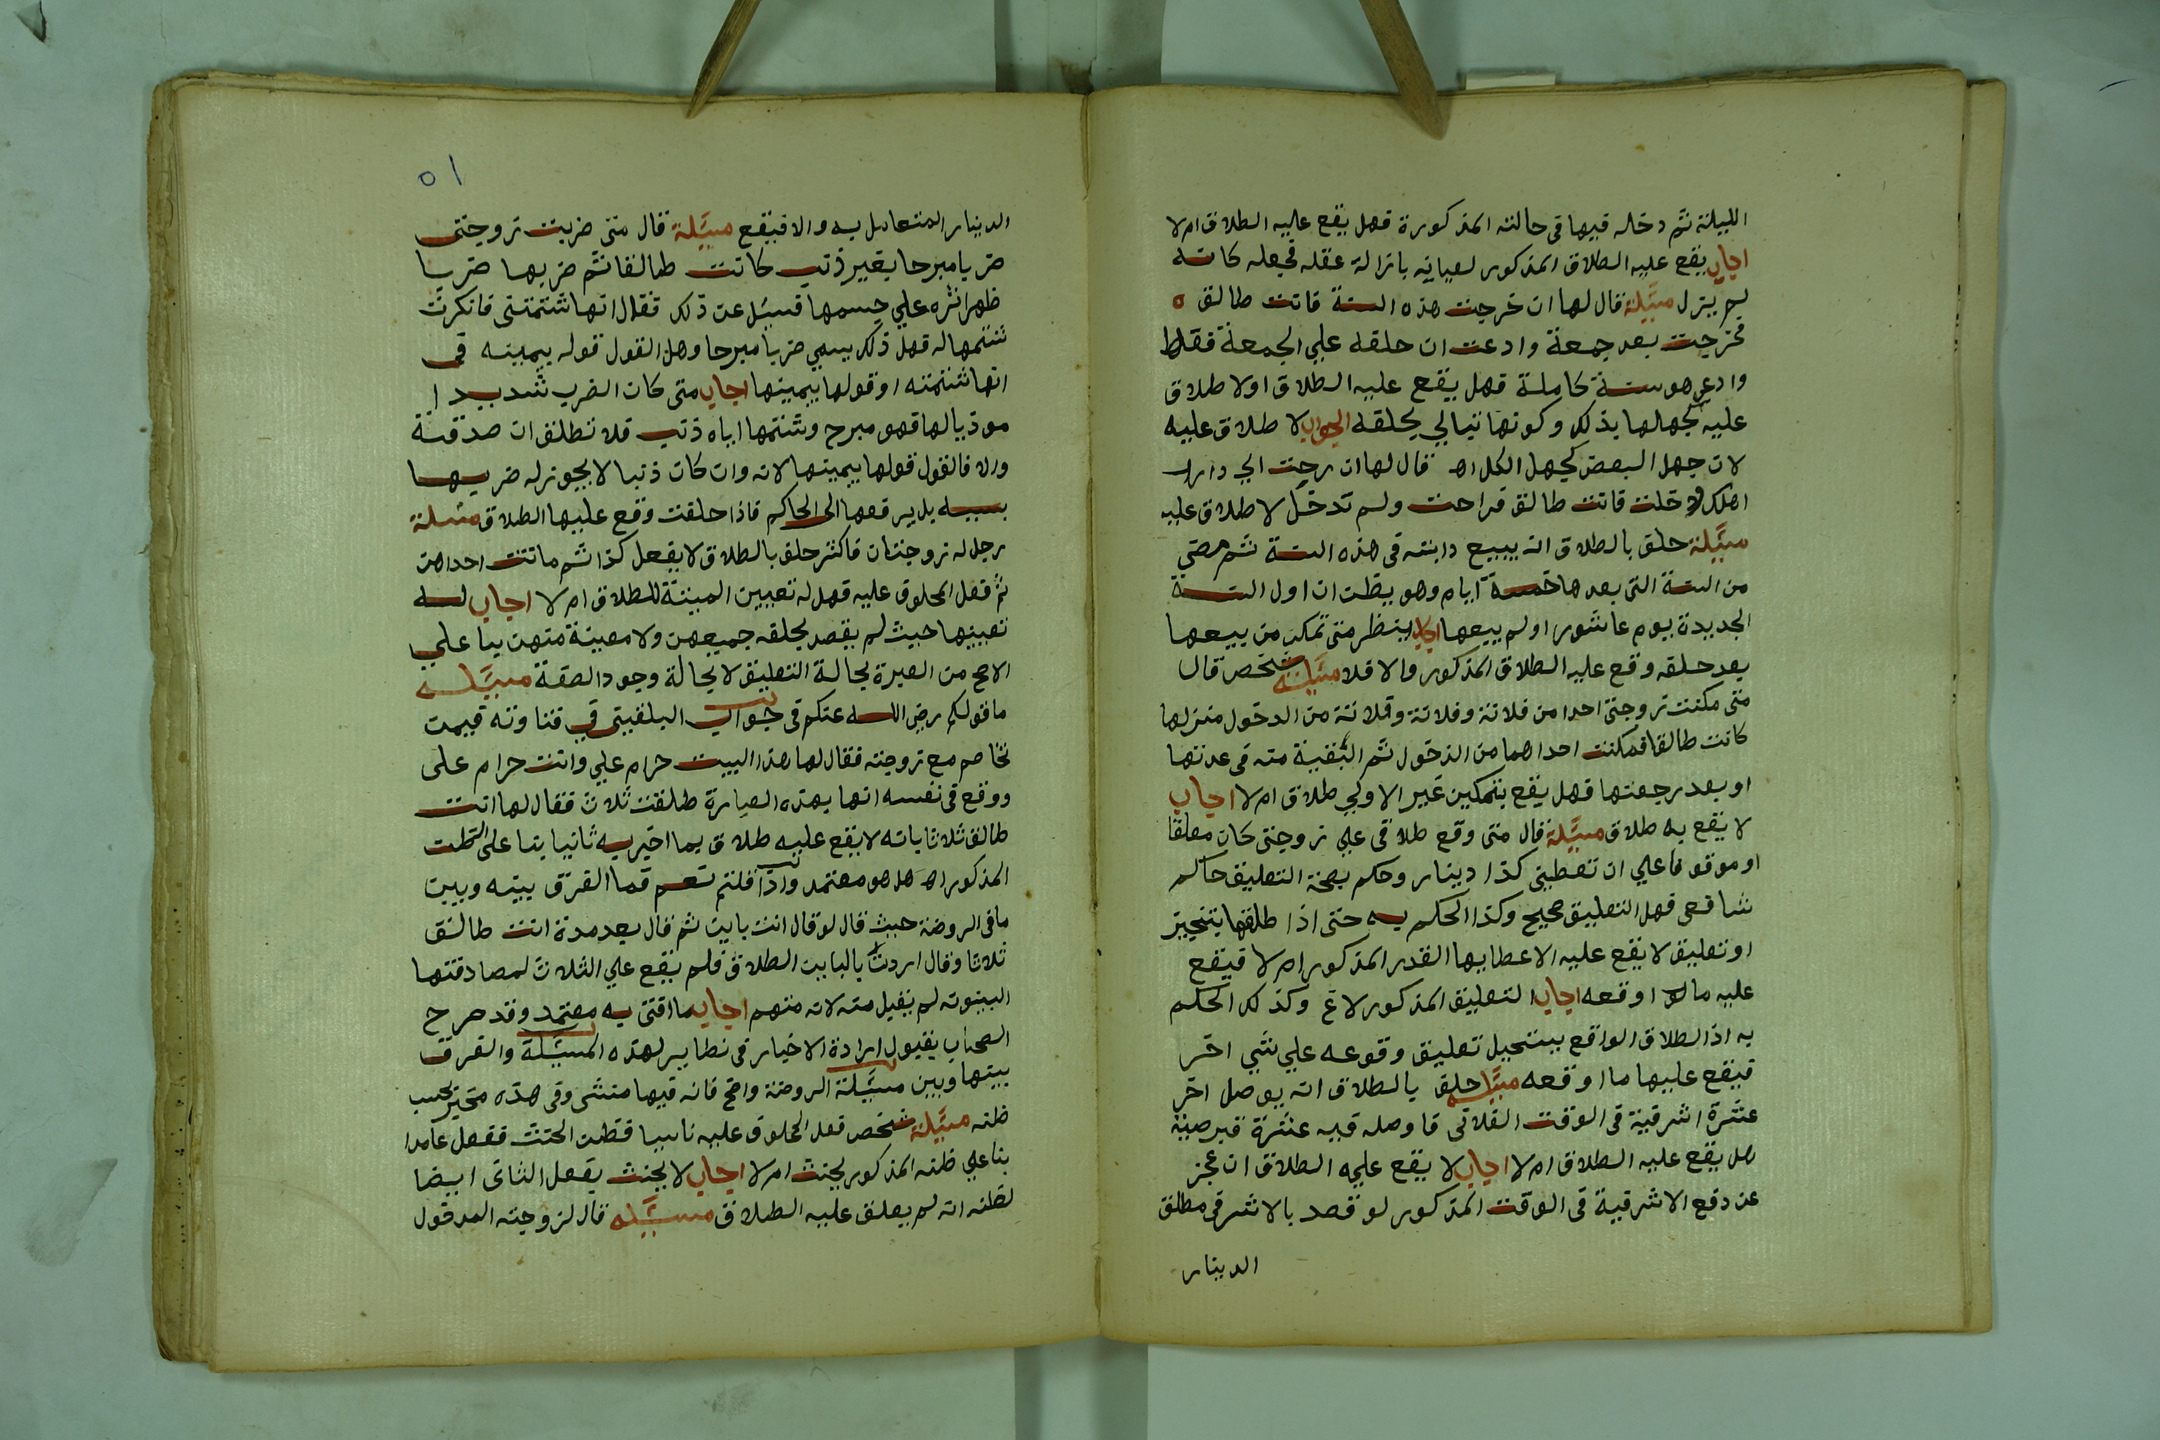 الليلة ثم دخله فيها في حالته المذكورة فهل يقع عليه الطلاق ام لا
اجاب يقع عليه الطلاق المذكور لعيانه بازالة عقله فجعله كانه
لم يزل مسئلة قال لها ان خرجت هذه السنة فانت طالق ه
فخرجت بعد جمعة وادعت ان حلفه علي الجمعة فقط
وادعي هو سنة كاملة فهل يقع عليه الطلاق اولا طلاق
عليه لجهلها بذلك وكونها تبالي بحلفه الجواب لا طلاق عليه
لان جهل البعض كجهل الكل اه قال لها ان رحت الي دار
اهلك ودخلت فانت طالق فراحت ولم تدخل لا طلاق عليه
مسئلة حلف بالطلاق انه يبيع دابته في هذه السنة ثم مضي
من السنة التي بعدها خمسة ايام وهو يظن ان اول السنة
الجديدة يوم عاشورا ولم يبيعها اجاب ينظر متي تمكن من بيعها
بعد حلفه وقع عليه الطلاق المذكور والا فلا مسئلة شخص قال
متي مكنت زوجتي احدا من فلانة وفلانة وفلانة من الدخول منزلها
كانت طالقا فمكنت احداهما من الدخول ثم البقية منه في عدتها
او بعد رجعتها فهل يقع بتمكين غير الاولي طلاق ام لا اجاب
لا يقع به طلاق مسئلة قال متي وقع طلاقي علي زوجتي كان معلقا
او موقوفا علي ان تعطيني كذا دينار وحكم بصحة التعليق حاكم
شافعي فهل التعليق صحيح وكذا الحكم به حتي اذا طلقها بتنجيز
او تعليق لا يقع عليه الا عطايها القدر المذكور ام لا فيقع
عليه ما اوقعه اجاب التعليق المذكور لاغ وكذلك الحكم
به اذ الطلاق الواقع يستحيل تعليق وقوعه علي شي اخر
فيقع عليها ما اوقعه مسئلة حلف بالطلاق انه يوصل اخر
عشرة اشرفية في الوقت الفلاني فاوصله فيه عشرة قبرصية
هل يقع عليه الطلاق ام لا اجاب لا يقع عليه الطلاق ان عجز
عن دفع الاشرفية في الوقت المذكور لو قصد بالاشرفي مطلق
الدينار
٥١
الدينار المتعامل به والا فيقع مسئلة قال متي ضربت زوجتي
ضربا مبرحا بغير ذنب كانت طالقا ثم ضربها ضربا
ظهر اثره علي جسمها فسئل عن ذلك فقال انها شتمتني فانكرت
شتمها له فهل ذلك يسمي ضربا مبرحا وهل القول قوله بيمينه في
انها شتمته او قولها بيمينها اجاب متي كان الضرب شديدا
موذيا لها فهو مبرح وشتمها اياه ذنب فلا تطلق ان صدقته
والا فالقول قولها بيمينها لانه وان كان ذنبا لا يجوز له ضربها
بسببه بل يرفعها الي الحاكم فاذا حلفت وقع عليها الطلاق مسئلة
رجل له زوجتان فاكثر حلف بالطلاق لا يفعل كذا ثم ماتت احداهن
ثم فعل المحلوف عليه فهل له تعيين الميتة للطلاق ام لا اجاب له
تعيينها حيث لم يقصد بحلفه جميعهن ولا معينة منهن بنا علي
الاصح من العبرة بحالة التعليق لا بحالة وجود الصفة مسئلة
ما قولكم رضي الله عنكم في جواب البلقيني في فتاويه فيمن
تخاصم مع زوجته فقال لها هذا البيت حرام علي وانت حرام علي
ووقع في نفسه انها بهذه العبارة طلقت ثلاث فقال لها انت
طالق ثلاثا بانه لا يقع عليه طلاق بما اخبر به ثانيا بنا علي الظن
المذكور اه هل هو معتمد واذا قلتم نعم فما الفرق بينه وبين
ما في الروضة حيث قال لو قال انت باين ثم قال بعد مدة انت طالق
ثلاثا وقال اردت بالباين الطلاق فلم يقع علي الثلاث لمصادفتها
البينونة لم يقبل منه لانه متهم اجاب ما افتي به معتمد وقد صرح
الصحاب بقبول ارادة الاخبار في نظاير لهذه المسئلة والفرق
بينها وبين مسئلة الروضة واضح فانه فيها منشي وفي هذه مخبر بحسب
ظنه مسئلة شخص فعل المحلوف عليه ناسيا فظن الحنث ففعل عامدا
بنا علي ظنه المذكور يحنث ام لا اجاب لا يحنث بفعل الثاني ايضا
لظنه انه لم يعلق عليه الطلاق مسئلة قال لزوجته المدخول